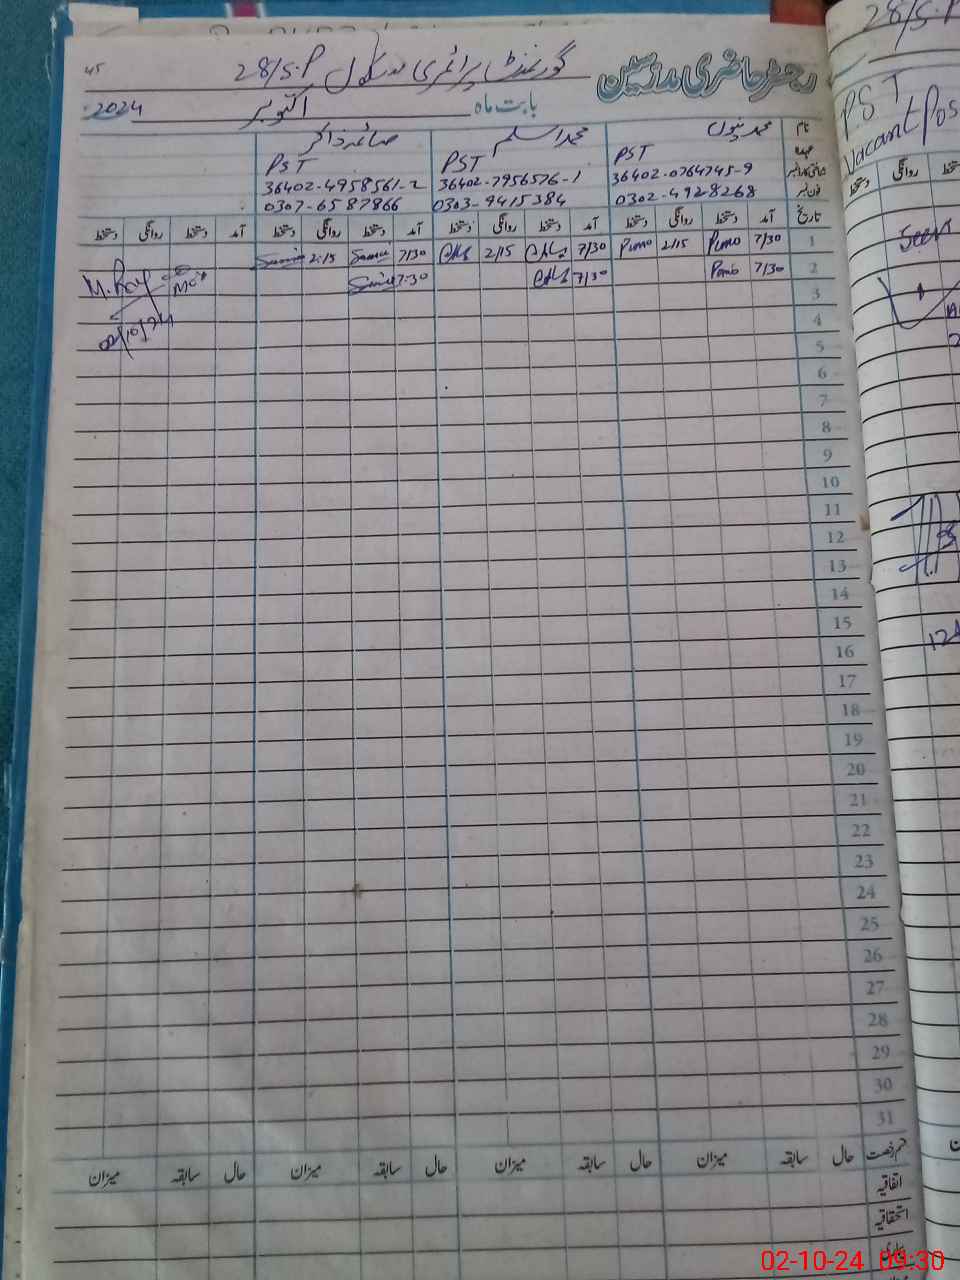 رجسٹر حاضری مدرسین گورنمنٹ پرائمری سکول 28/S.P 45
بابت ماہ اکتوبر 2024
نام محمد اسلم صائمہ ذاکر
عہدہ PST PST PST
36402-0764745-9 36402-7956576-1 36402-4958561-2
0302-4928268 0303-9415384 0307-6587866
تاریخ آمد دستخط روانگی دستخط آمد دستخط روانگی دستخط آمد دستخط روانگی دستخط آمد دستخط روانگی دستخط
1 7/30 2/15 7/30 2/15 7/30 2:15
2 7/30 7/30 7:30
3
4
02/10/24
5
6
7
8
9
10
11
12
13
14
15
16
17
18
19
20
21
22
23
24
25
26
27
28
29
30
31
قسم رخصت حال سابقہ میزان حال سابقہ میزان حال سابقہ میزان حال سابقہ میزان
اتفاقیہ
استحقاقیہ
بیماری
28/S.P
PST
Vacant Pos
روانگی دستخط
Seen
124
02-10-24 09:30